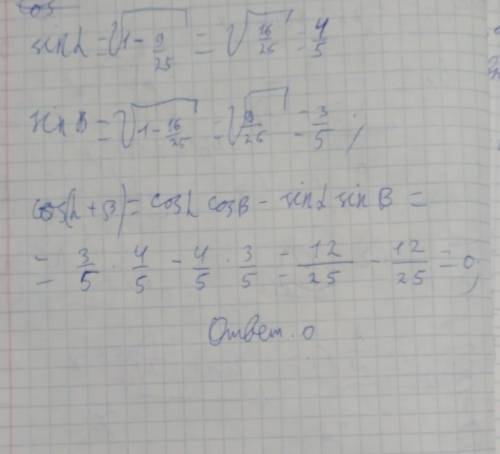 cos
sinα = √(1 - 9/25) = √(16/25) = 4/5
sin B = √(1 - 16/25) = √(9/25) = 3/5 ;
cos(α + B) = cosα cosB - sinα sin B =
= 3/5 · 4/5 - 4/5 · 3/5 = 12/25 - 12/25 = 0;
Ответ. 0